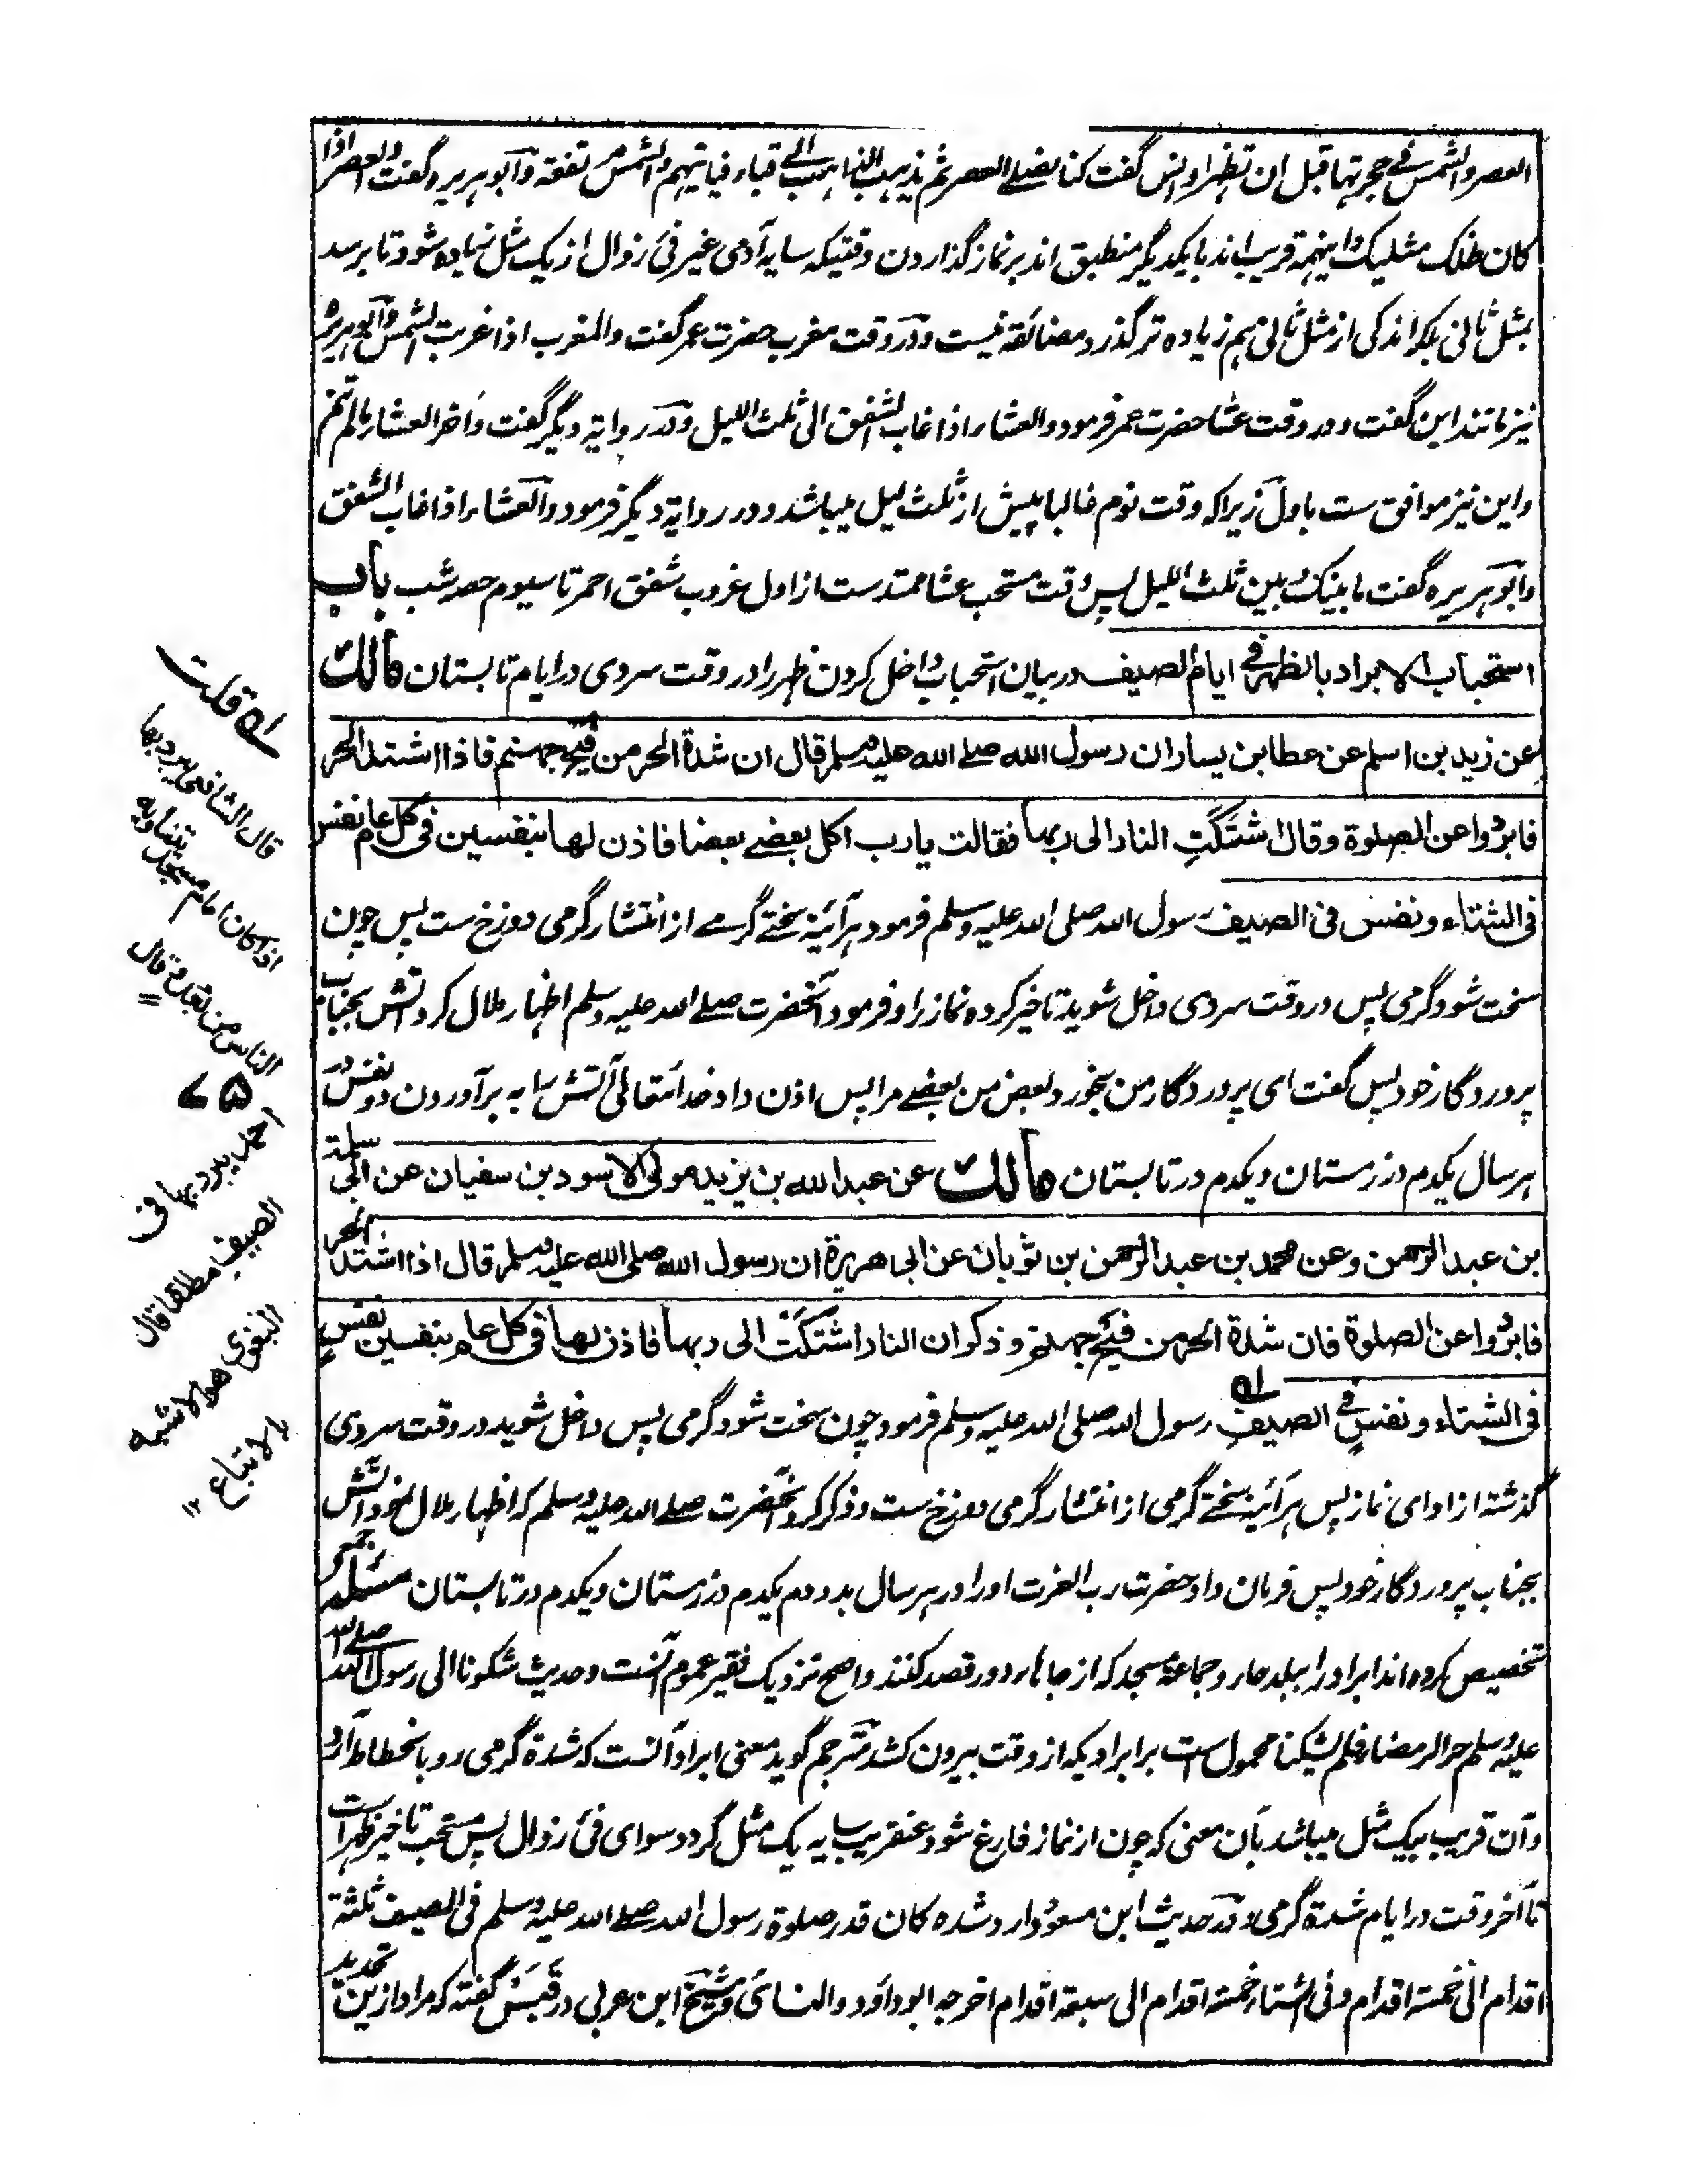 العصر والشمس فی حجرتها قبل ان تظهر وانس گفت کنا نصلی العصر ثم یذهب الذاهب الی قباء فیاتیهم والشمس مرتفعة وابو هریره گفت والعصر اذا
کان ظلک مثلیک واینهمه قریب اند بایکدیگر منطبق اند بر نماز گذاردن وقتیکه سایه آدمی غیر فی زوال از یک مثل زیاده شود تا برسد
بمثل ثانی بلکه اندکی از مثل ثانی هم زیاده تر گذرد مضائقه نیست ودر وقت مغرب حضرت عمر گفت والمغرب اذا غربت الشمس وابو هریره
نیز مانند این گفت ودر وقت عشا حضرت عمر فرمود والعشاء اذا غاب الشفق الی ثلث اللیل ودر روایة دیگر گفت واخر العشاء مالم تنم
واین نیز موافق ست باول زیرا که وقت نوم غالبا پیش از ثلث لیل میباشد ودر روایة دیگر فرمود والعشاء اذا غاب الشفق
وابو هریره گفت ما بینک وبین ثلث اللیل پس وقت مستحب عشا ممتد ست از اول غروب شفق احمر تا سیوم حصه شب باب
استحباب الابراد بالظهر فی ایام الصیف در بیان استحباب داخل کردن ظهر را در وقت سردی در ایام تابستان مالک
عن زید بن اسلم عن عطا بن یسار ان رسول الله صلی الله علیه وسلم قال ان شدة الحر من فیح جهنم فاذا اشتد الحر
فابردوا عن الصلوة وقال اشتکت النار الی ربها فقالت یا رب اکل بعضی بعضا فاذن لها بنفسین فی کل عام نفس
فی الشتاء ونفس فی الصیف رسول الله صلی الله علیه وسلم فرمود هر آئینه سختے گرمے از انتشار گرمی دوزخ ست پس چون
سخت شود گرمی پس در وقت سردی داخل شوید تاخیر کرده نماز را وفرمود آنحضرت صلے الله علیه وسلم اظهار ملال کرد آتش بجناب
پروردگار خود پس گفت ای پروردگار من بخورد بعض من بعضے مرا پس اذن داد خدا تعالی آتش را به برآوردن دو نفس در
هر سال یکدم در زمستان ویکدم در تابستان مالک عن عبد الله بن یزید مولی الاسود بن سفیان عن ابی سلمة
بن عبد الرحمن وعن محمد بن عبد الرحمن بن ثوبان عن ابی هریرة ان رسول الله صلی الله علیه وسلم قال اذا اشتد الحر
فابردوا عن الصلوة فان شدة الحر من فیح جهنم وذکر ان النار اشتکت الی ربها فاذن لها فی کل عام بنفسین نفس
فی الشتاء ونفس فی الصیف رسول الله صلی الله علیه وسلم فرمود چون سخت شود گرمی پس داخل شوید در وقت سردی
گذشته از ادای نماز پس هر آئینه سختے گرمی از انتشار گرمی دوزخ ست وذکر کرد آنحضرت صلے الله علیه وسلم که اظهار ملال نمود آتش
بجناب پروردگار خود پس فرمان داد حضرت رب العزت او را در هر سال بدو دم یکدم در زمستان ویکدم در تابستان مسئله جمعی
تخصیص کرده اند ابراد را ببلد حار وجماعة مسجد که از جاهاء دور قصد کنند واصح نزدیک فقیر عموم آنست وحدیث شکونا الی رسول الله صلے الله
علیه وسلم حر الرمضاء فلم یشکنا محمول ست بر ابرادیکه از وقت بیرون کشد مترجم گوید معنی ابراد آنست که شدة گرمی رو بانحطاط آرد
وآن قریب بیک مثل میباشد بآن معنی که چون از نماز فارغ شود عنقریب سایه یک مثل گردد سوای فئ زوال پس مستحب تاخیر ظهر است
تا آخر وقت در ایام شدة گرمی ودر حدیث ابن مسعود وارد شده کان قدر صلوة رسول الله صلے الله علیه وسلم فی الصیف ثلثة
اقدام الی خمسة اقدام وفی الشتاء خمسة اقدام الی سبعة اقدام اخرجه ابو داؤد والنسائی وشیخ ابن عربی در قبس گفته که مراد ازین تحدید
له قلت
قال الشافعی یبرد بها
اذا کان امام مسجد ینتابه
الناس من بعد وقال
احمد یبرد بها فی
الصیف مطلقا قال
البغوی هو الاشبه
بالاتباع ۱۲